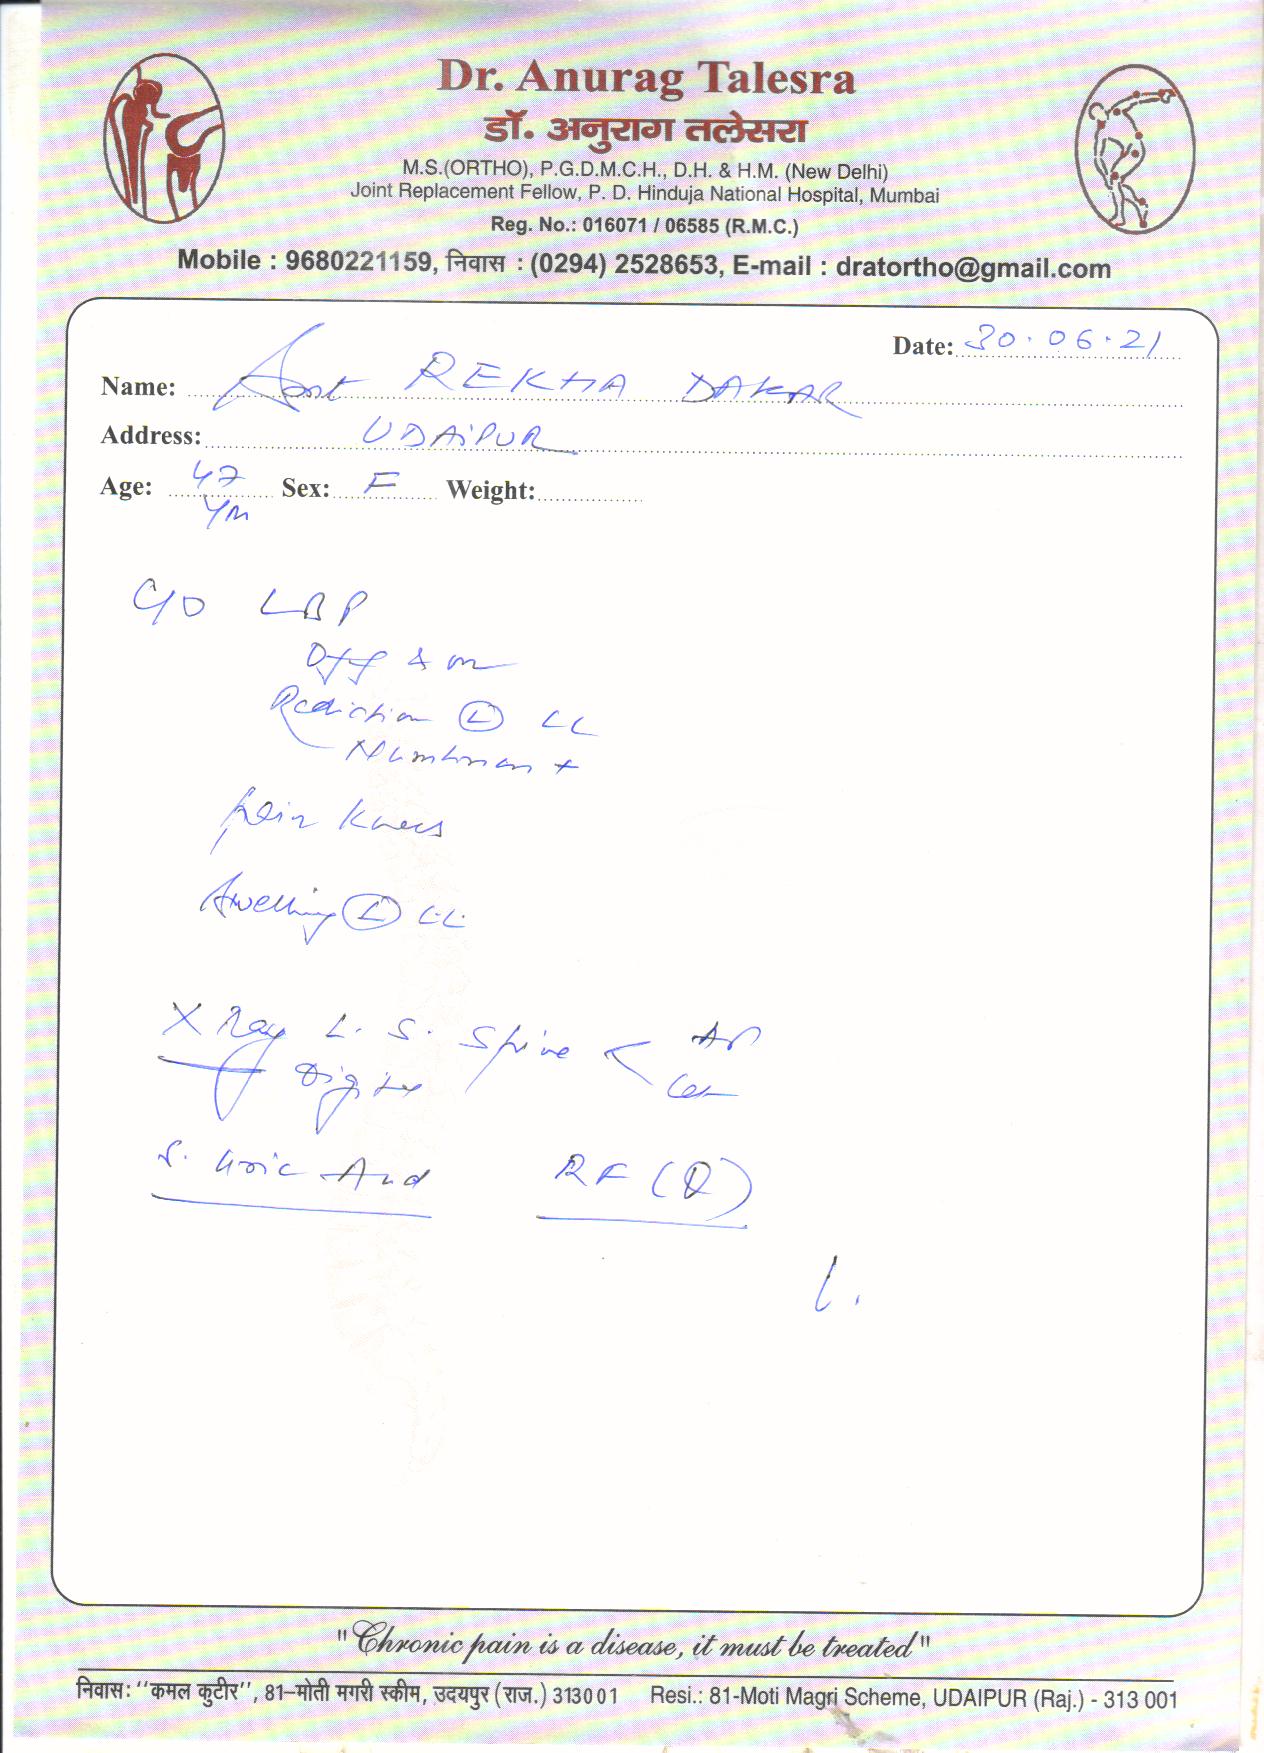 Dr. Anurag Talesra
डॉ. अनुराग तलेसरा
M.S.(ORTHO), P.G.D.M.C.H., D.H. & H.M. (New Delhi)
Joint Replacement Fellow, P. D. Hinduja National Hospital, Mumbai
Reg. No.: 016071 / 06585 (R.M.C.)
Mobile : 9680221159, निवास : (0294) 2528653, E-mail : dratortho@gmail.com
Date: 30.06.21
Name: Smt REKHA DAKAR
Address: UDAIPUR
Age: 47 Sex: F Weight:
C/O LBP
Off & on
Radiation Ⓛ LL
Numbness +
Pain Knees
Swelling Ⓛ LL
X Ray L. S. Spine < AP
Digital Lat
S. Uric Acid RF (Q)
"Chronic pain is a disease, it must be treated"
निवास: "कमल कुटीर", 81-मोती मगरी स्कीम, उदयपुर (राज.) 313001 Resi.: 81-Moti Magri Scheme, UDAIPUR (Raj.) - 313 001